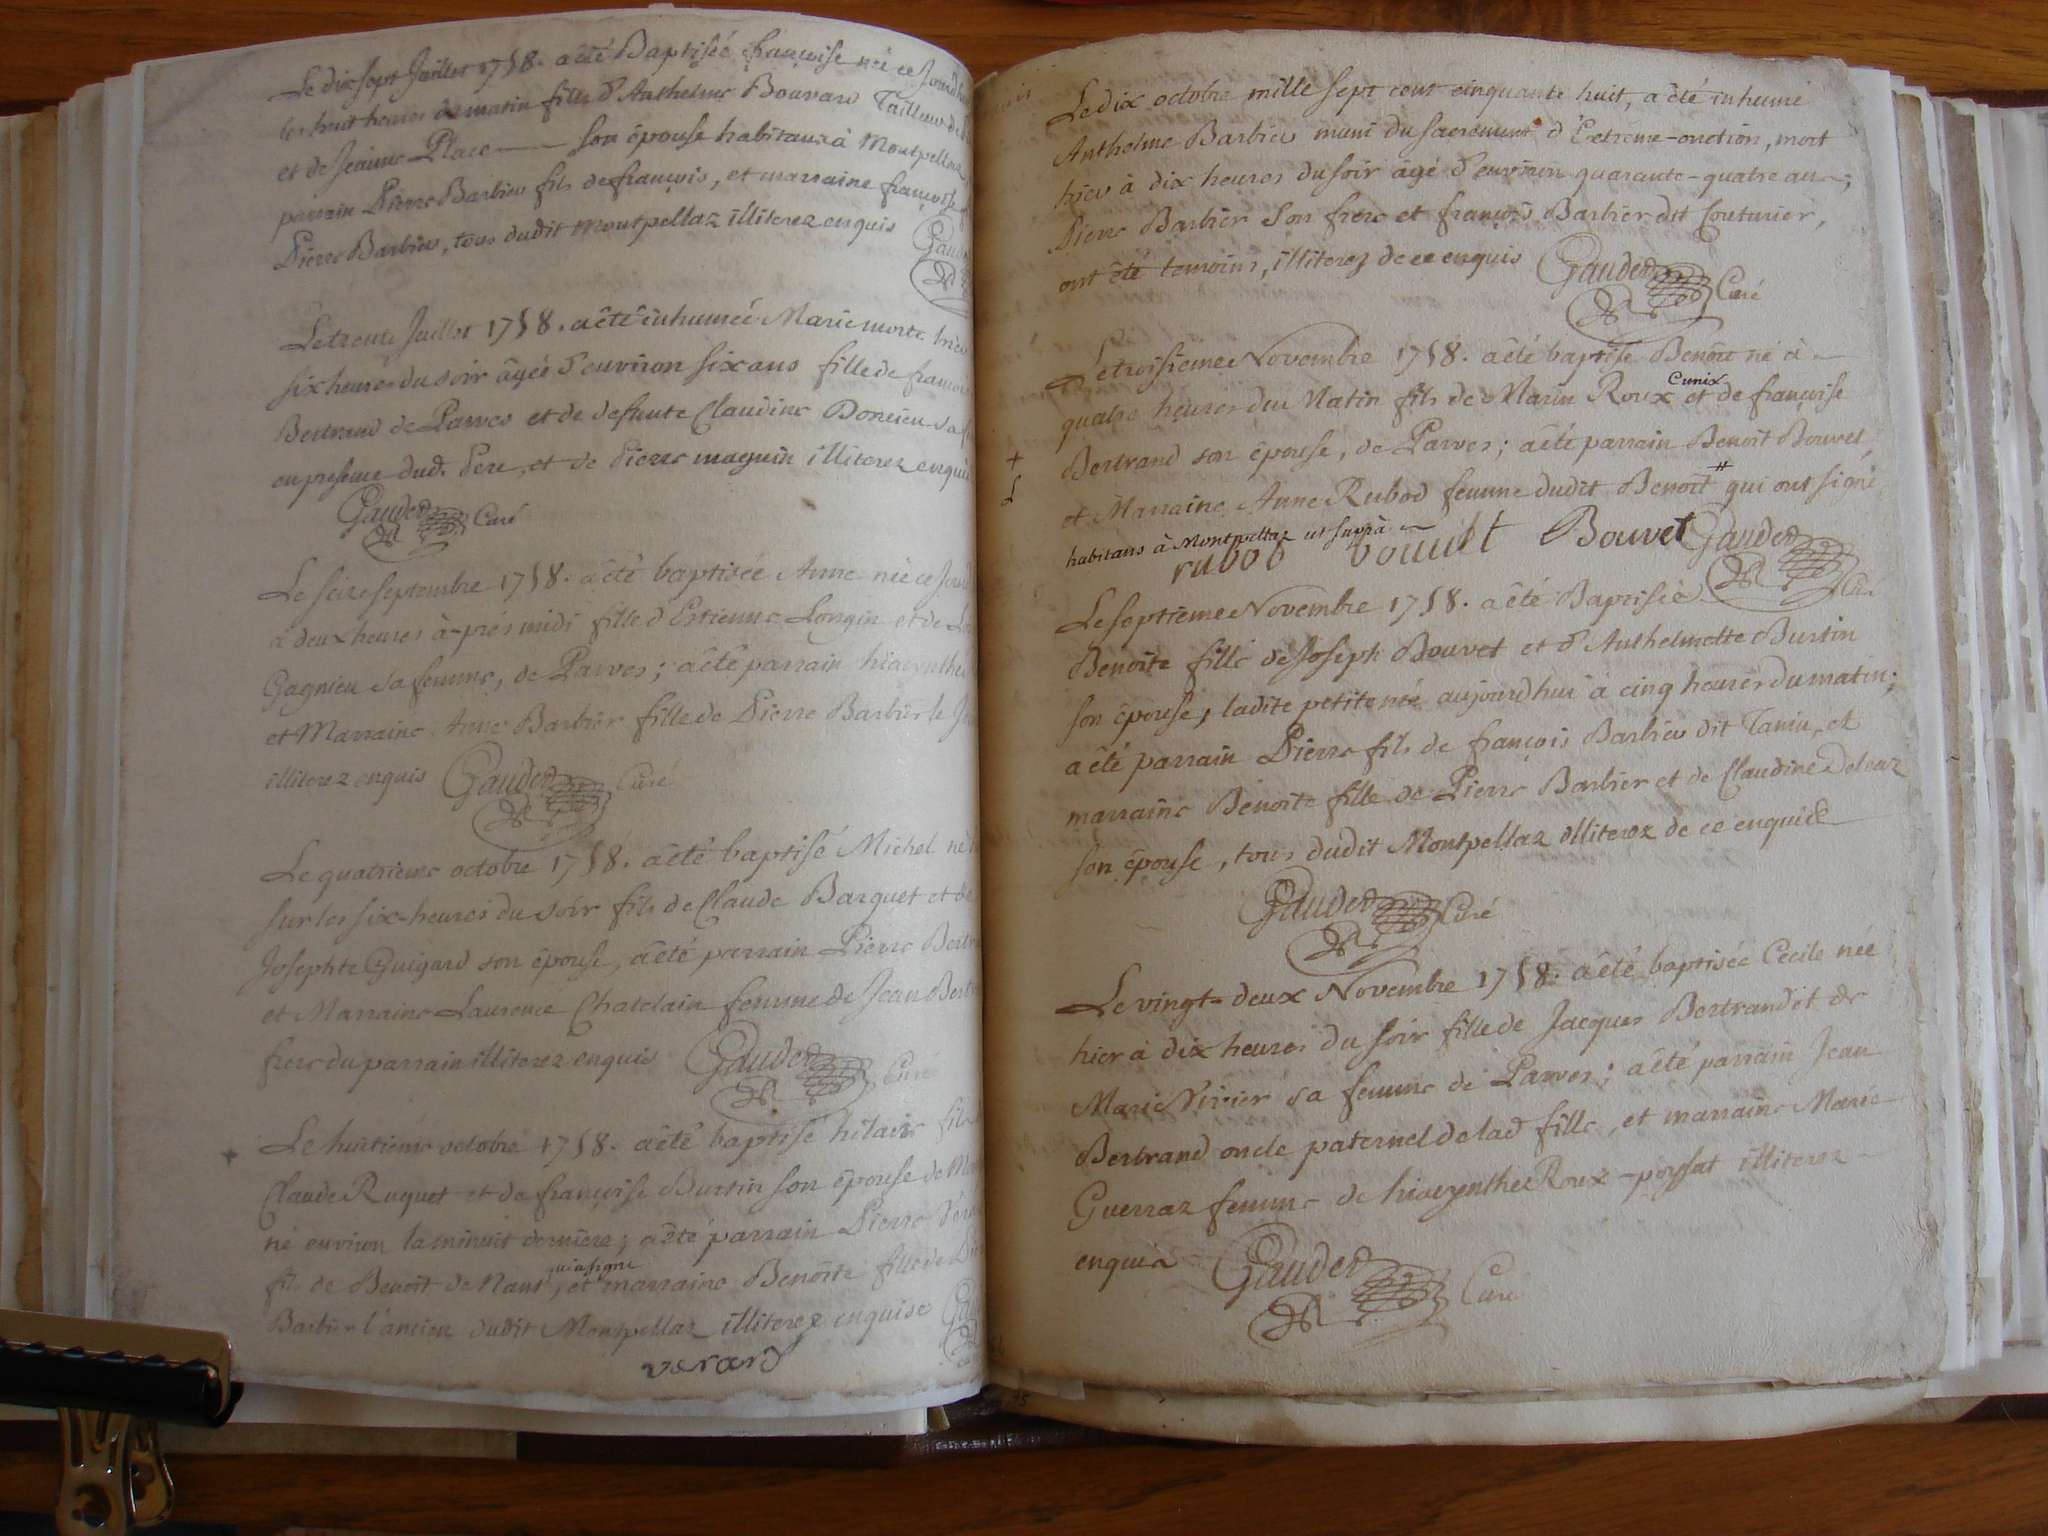 Le dix sept Juillet 1758. a êté Baptisée françoise née ce Jourd
les huit heures du matin fille d'Anthelme Bouvard Tailleur de
et de Jeanne Place son épouse habitans à Montpellaz,
parrain Pierre Barbier fils de françois, et marraine françoise
Pierre Barbier, tous dudit Montpellaz illiterez enquis
Gauder
Le trente Juillet 1758. a êté inhumée Marie morte hier
six heures du soir âgée d'environ six ans fille de françois
Bertrand de Parves et de defunte Claudine Doncieu sa
en presence dud. Pere, et de Pierre maguin illiterez enquis
Gauder Curé
Le seize septembre 1758. a êté baptisée Anne née ce Jour
à deux heures à-prés midi fille d'Estienne Longin et de
Gagnieu sa femme, de Parves; a êté parrain hiacynthe
et Marraine Anne Barbier fille de Pierre Barbier le
illiterez enquis Gauder Curé
Le quatrieme octobre 1758. a êté baptisé Michel né
sur les six-heures du soir fils de Claude Barquet et de
Josephte Guigard son épouse, a êté parrain Pierre Bertr
et Marraine Laurence Chatelain femme de Jean Bert
frere du parrain illiterez enquis Gauder Curé
+ Le huitieme octobre 1758. a êté baptisé hilaire fils
Claude Ruquet et de françoise Burtin son épouse de
né environ la minuit derniere; a êté parrain Pierre
qui a signé
fils de Benoît de Nant, et marraine Benoîte fille de
Barbier l'ancien dudit Montpellaz illiterez enquise
verard
Le dix octobre mille sept cent cinquante huit, a êté inhumé
Anthelme Barbier muni du sacrement d'Extreme-onction, mort
hier à dix heures du soir âgé d'environ quarante-quatre ans;
Pierre Barbier son frere et françois Barbier dit Couturier,
ont êté temoins, illiterez de ce enquis Gauder Curé
Le troisieme Novembre 1758. a êté baptisé Benôit né à
Cunix
quatre heures du Matin fils de Marin Roux et de françoise
+ Bertrand son épouse, de Parves; a êté parrain Benoît Bouvet,
et Marraine Anne Rubod femme dudit Benoît # qui ont signé
habitans à Montpellaz ut suprà
rubod Bouvet Gauder Curé
Le septieme Novembre 1758. a êté Baptisée
Benoîte fille de Joseph Bouvet et d'Anthelmette Burtin
son épouse, ladite petite née aujourd'hui à cinq heures du matin;
a êté parrain Pierre fils de françois Barbier dit Taniu, et
marraine Benoîte fille de Pierre Barbier et de Claudine Delvaz
son épouse, tous dudit Montpellaz illiterez de ce enquis
Gauder Curé
Le vingt-deux Novembre 1758. a êté baptisée Cecile née
hier à dix heures du soir fille de Jacques Bertrand et de
Marie Virier sa femme de Parves; a êté parrain Jean
Bertrand oncle paternel de lad fille, et marraine Marie
Guerraz femme de hiacynthe Roux-poysat illiterez
enquis Gauder Curé